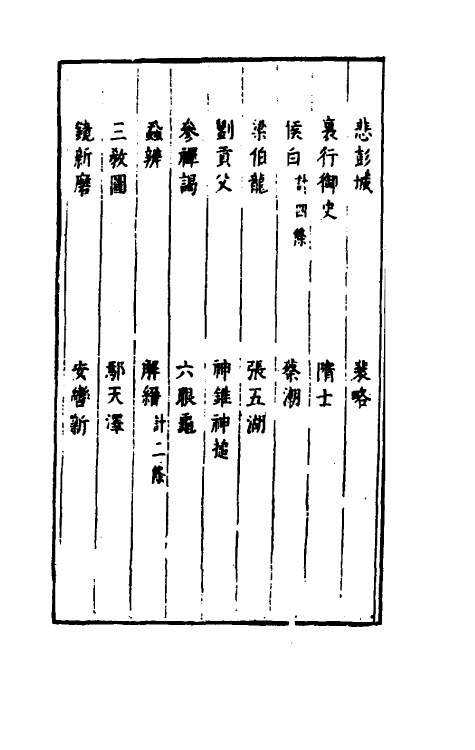 悲彭城　裴略
裏行御史　隋士
侯白計四條　蔡潮
梁伯龍　張五湖
劉貢父　神錐神槌
參禪謁　六眼龜
蝨辨　解縉計二條
三教圖　鄢天澤
鏡新磨　安轡新